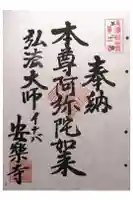 奉納
本尊阿弥陀如来
弘法大師
安樂寺